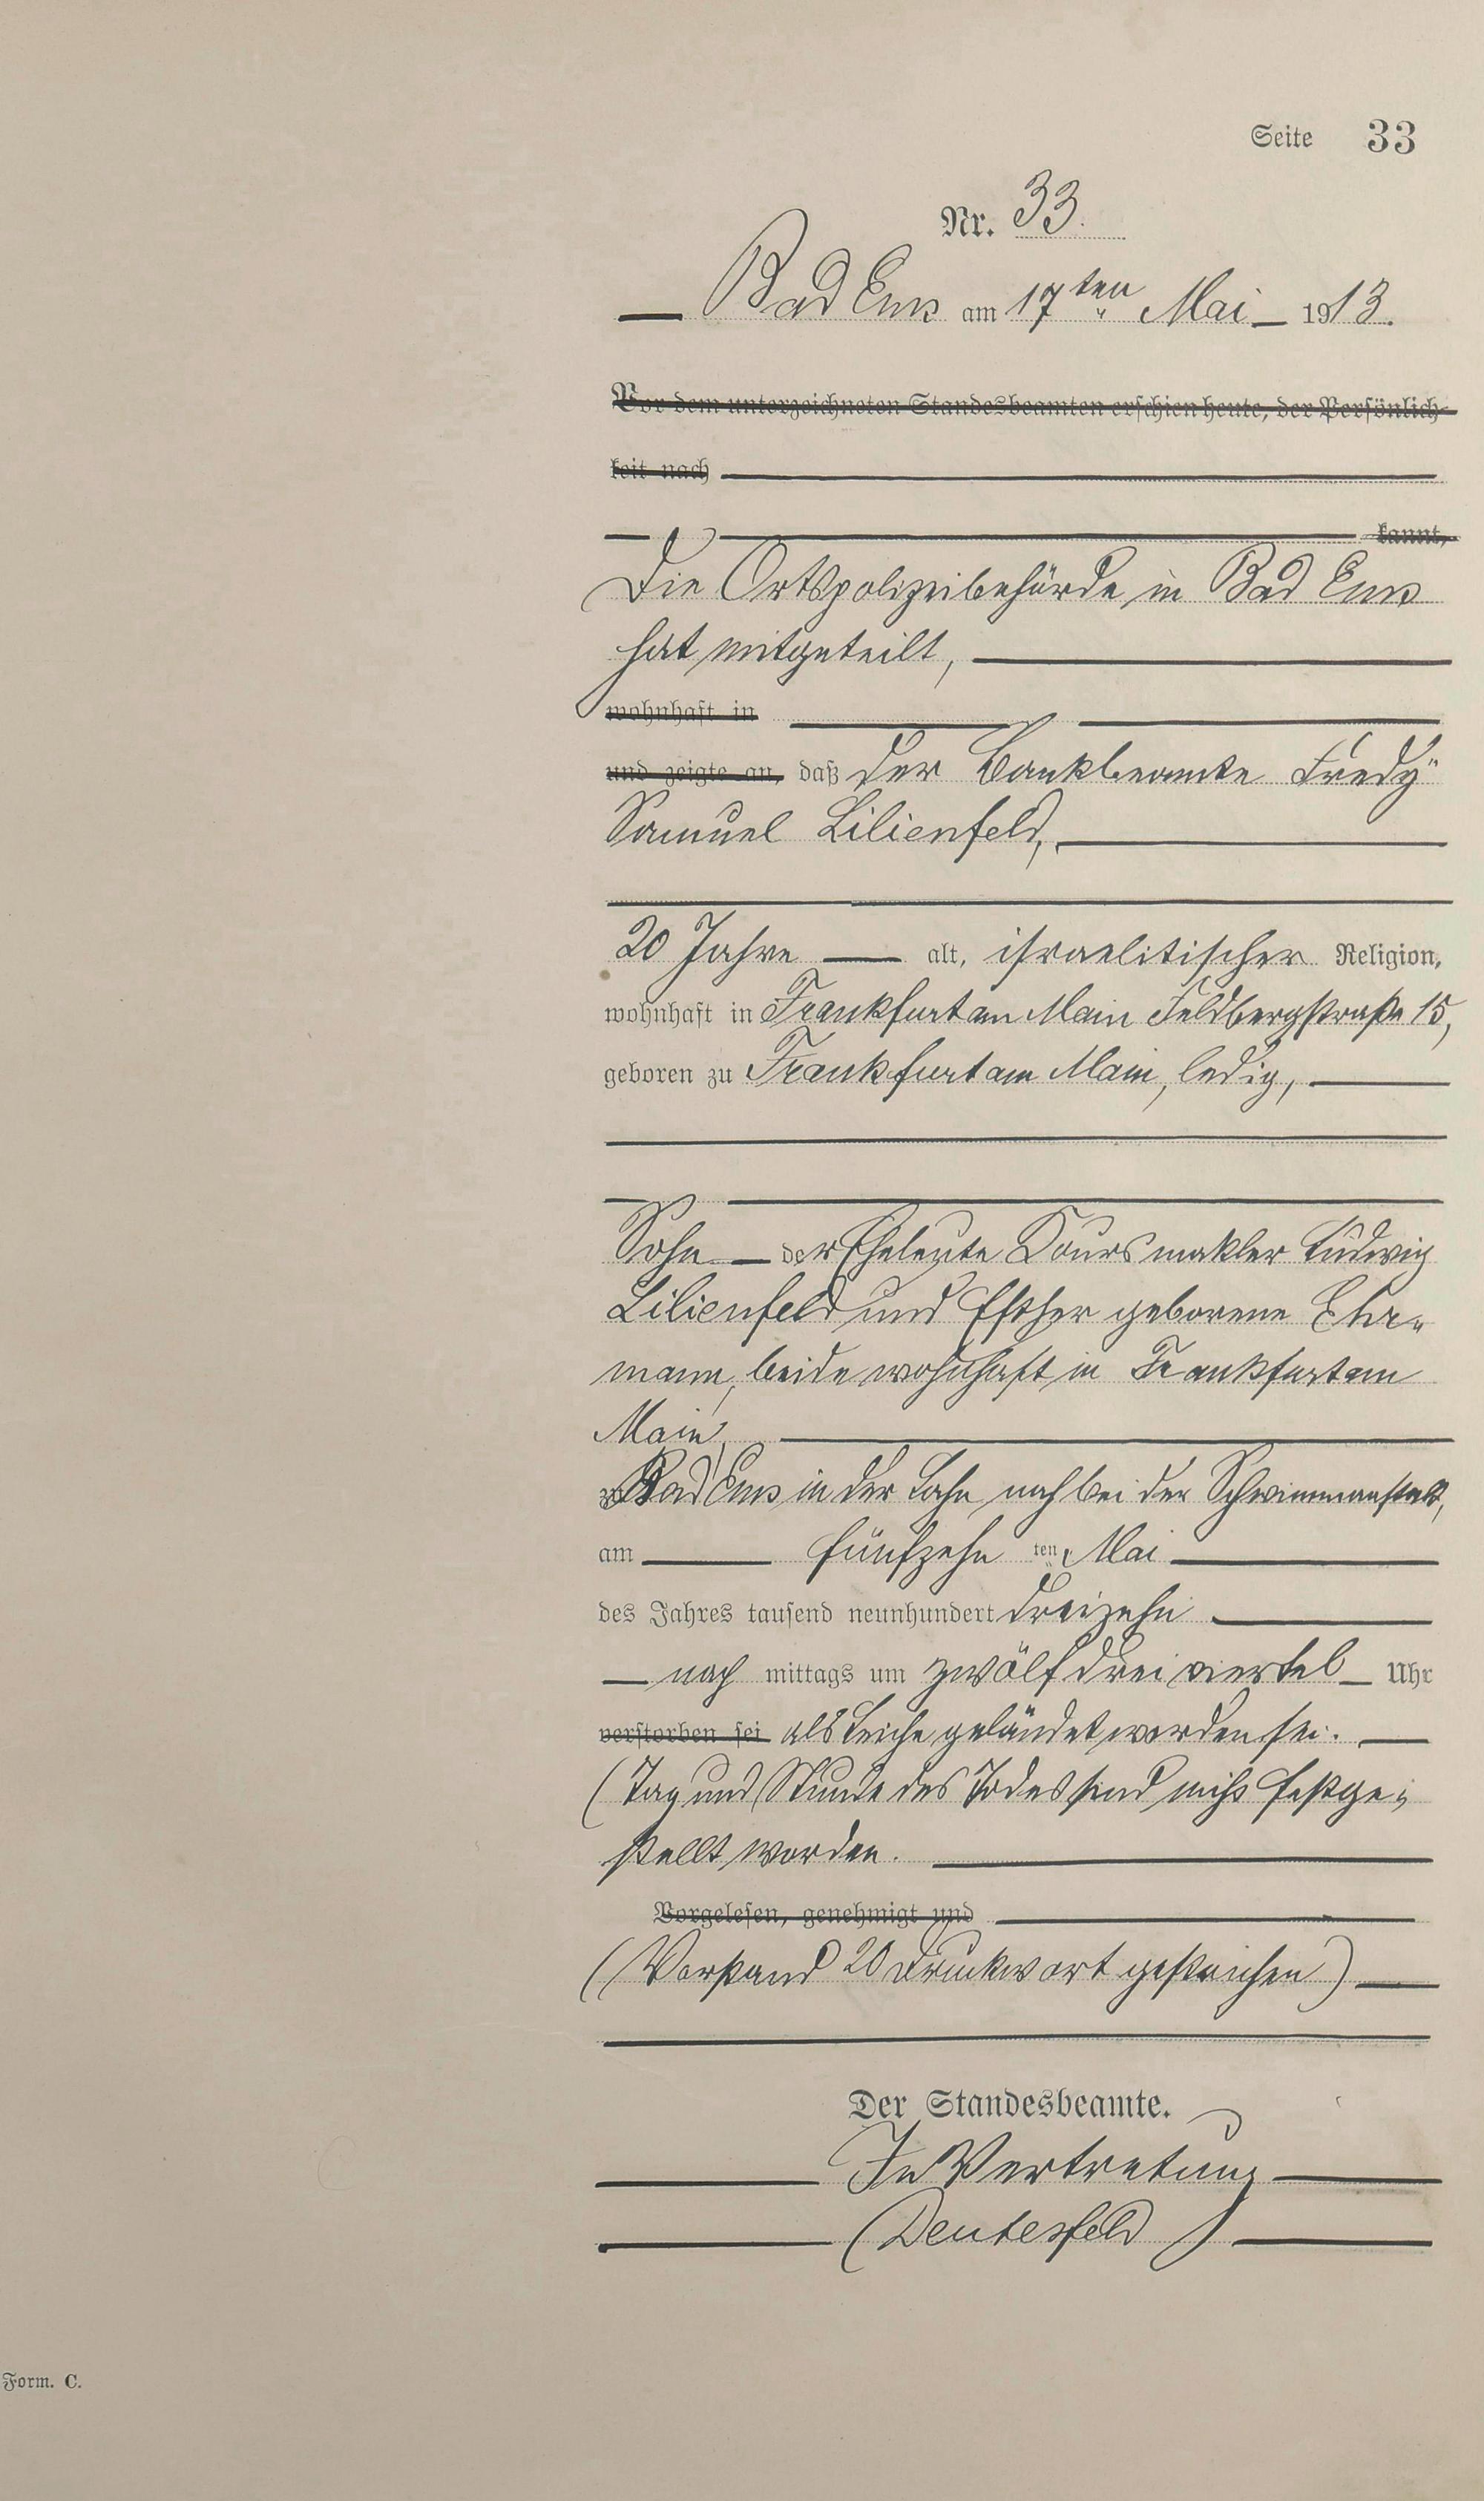 Seite 33
Nr. 33.
Bad Ems am 17ten Mai 1913.
Vor dem unterzeichneten Standesbeamten erschien heute, der Persönlich-
keit nach
kannt,
Die Ortspolizeibehörde in Bad Ems
hat mitgeteilt,
wohnhaft in
und zeigte an, daß der Bankbeamte Fredy
Samuel Lilienfeld,
20 Jahre alt, israelitischer Religion,
wohnhaft in Frankfurt am Main Feldbergstraße 15,
geboren zu Frankfurt am Main, ledig,
Sohn der Eheleute Coursmakler Ludwig
Lilienfeld und Esther geborene Ehr-
mann, beide wohnhaft in Frankfurt am
Main,
zu Bad Ems in der Lahn nah bei der Schwimmanstalt,
am fünfzehn ten Mai
des Jahres tausend neunhundert dreizehn
nach mittags um zwölf drei viertel Uhr
verstorben sei als Leiche geländet worden sei.
(Tag und Stunde des Todes sind nicht festge-
stellt worden.
Vorgelesen, genehmigt und
(Vorstand 20 Druckwort gestrichen)
Der Standesbeamte.
In Vertretung
(Deutesfeld)
Form. C.